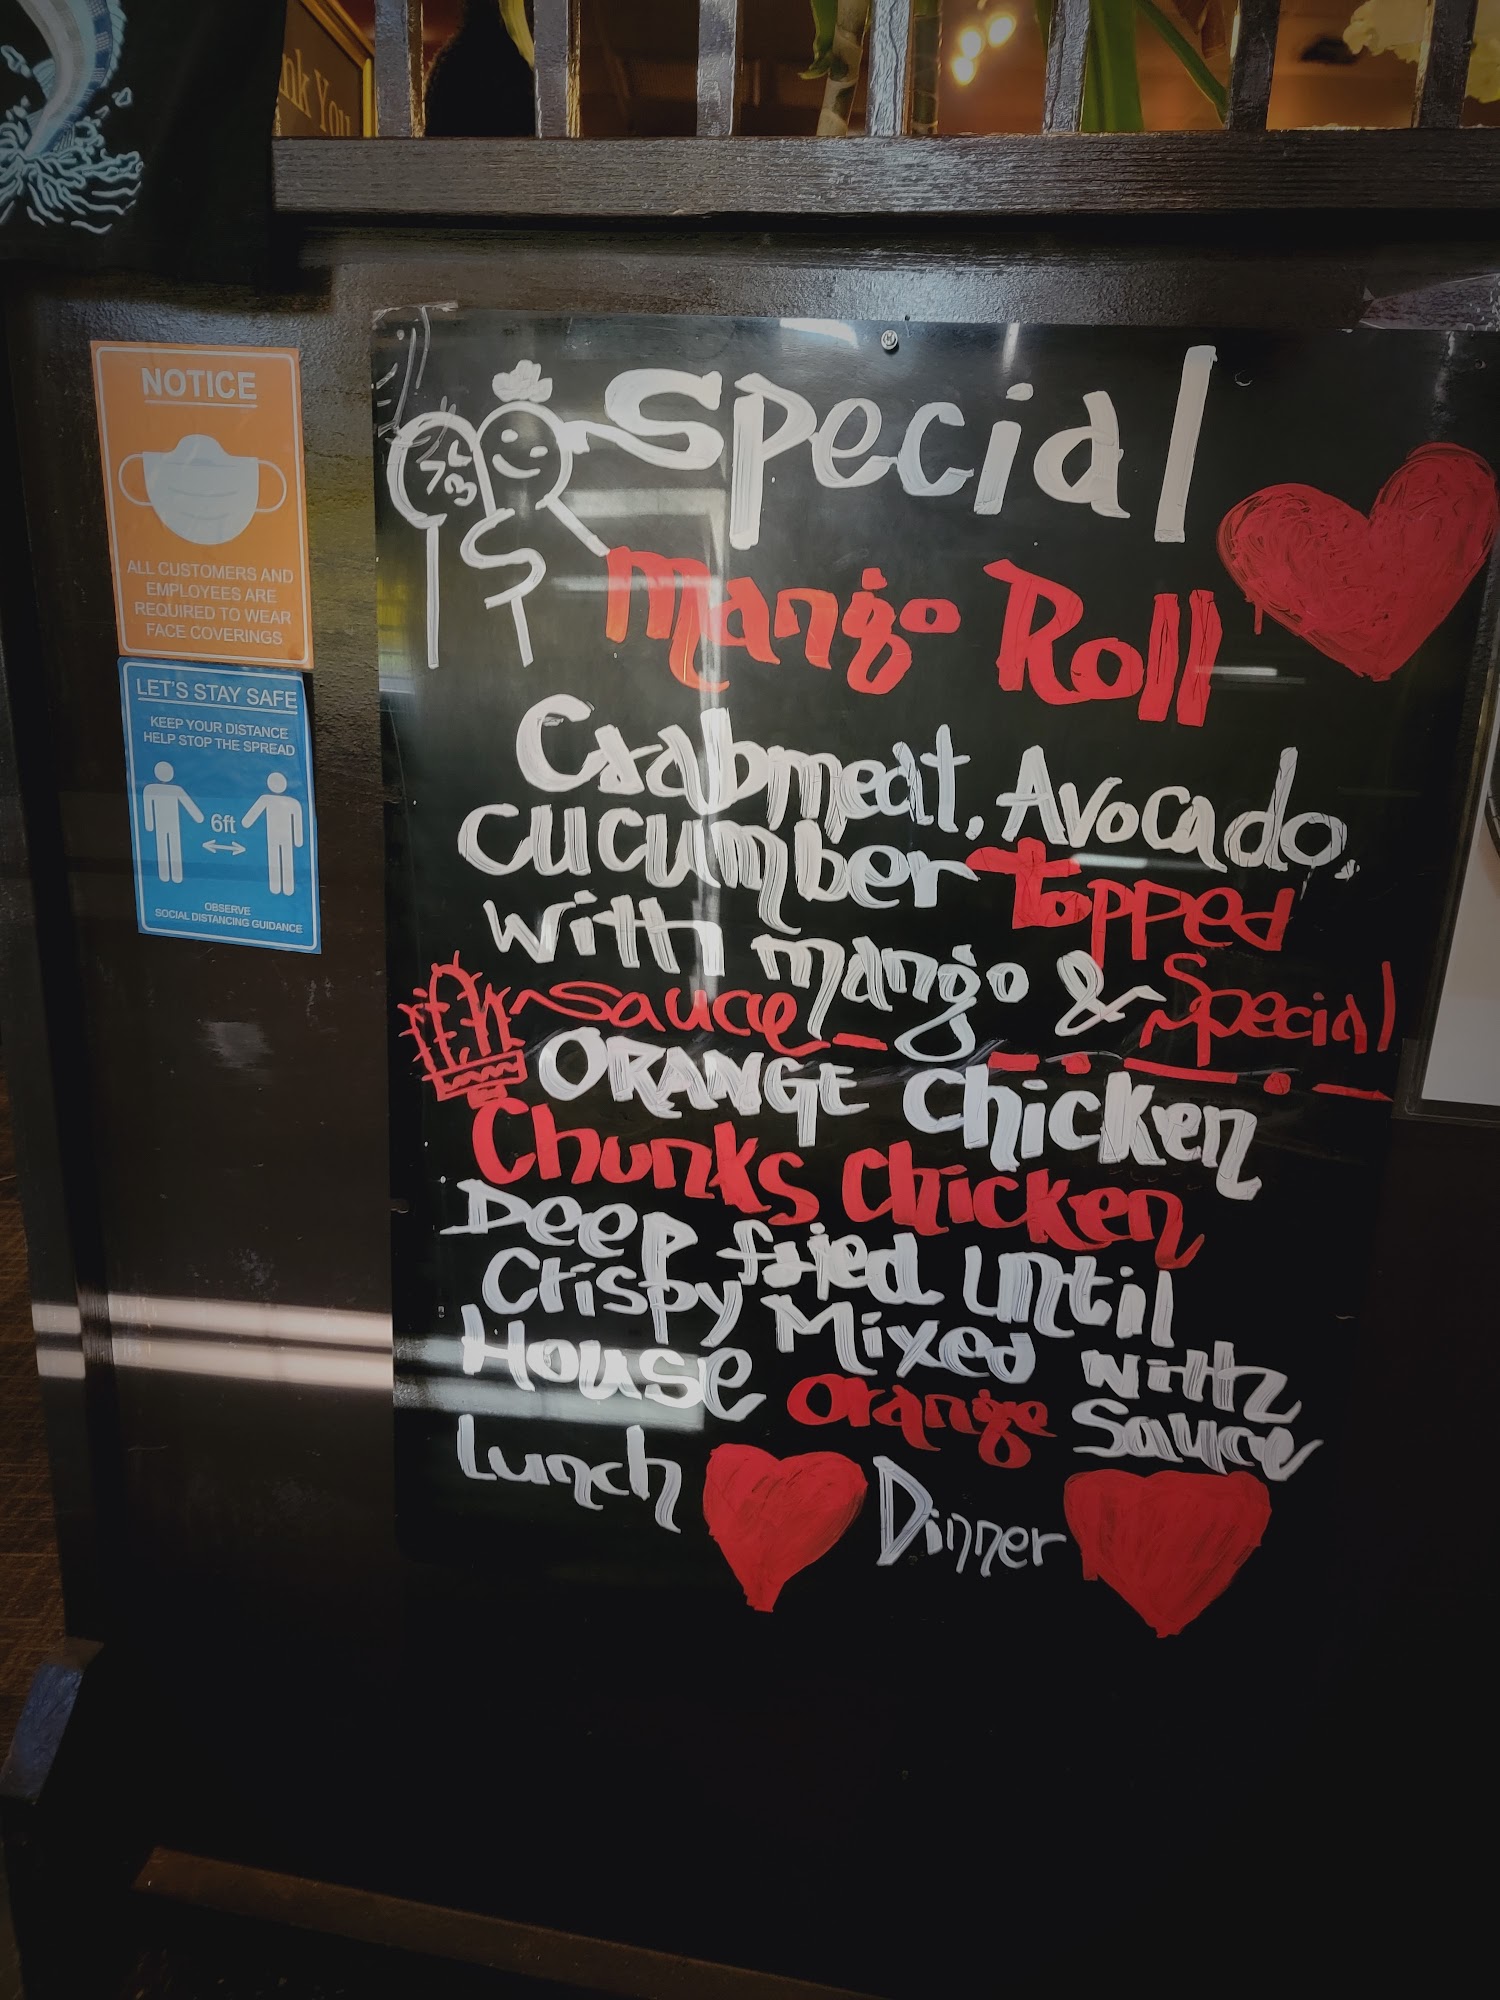 nk You
NOTICE
ALL CUSTOMERS AND
EMPLOYEES ARE
REQUIRED TO WEAR
FACE COVERINGS
LET'S STAY SAFE
KEEP YOUR DISTANCE
HELP STOP THE SPREAD
6ft
OBSERVE
SOCIAL DISTANCING GUIDANCE
Special
Mango Roll
Crabmeat, Avocado,
cucumber topped
with mango & Special
sauce
ORANGE Chicken
Chunks Chicken
Deep fried Until
Crispy Mixed with
House orange Sauce
Lunch Dinner